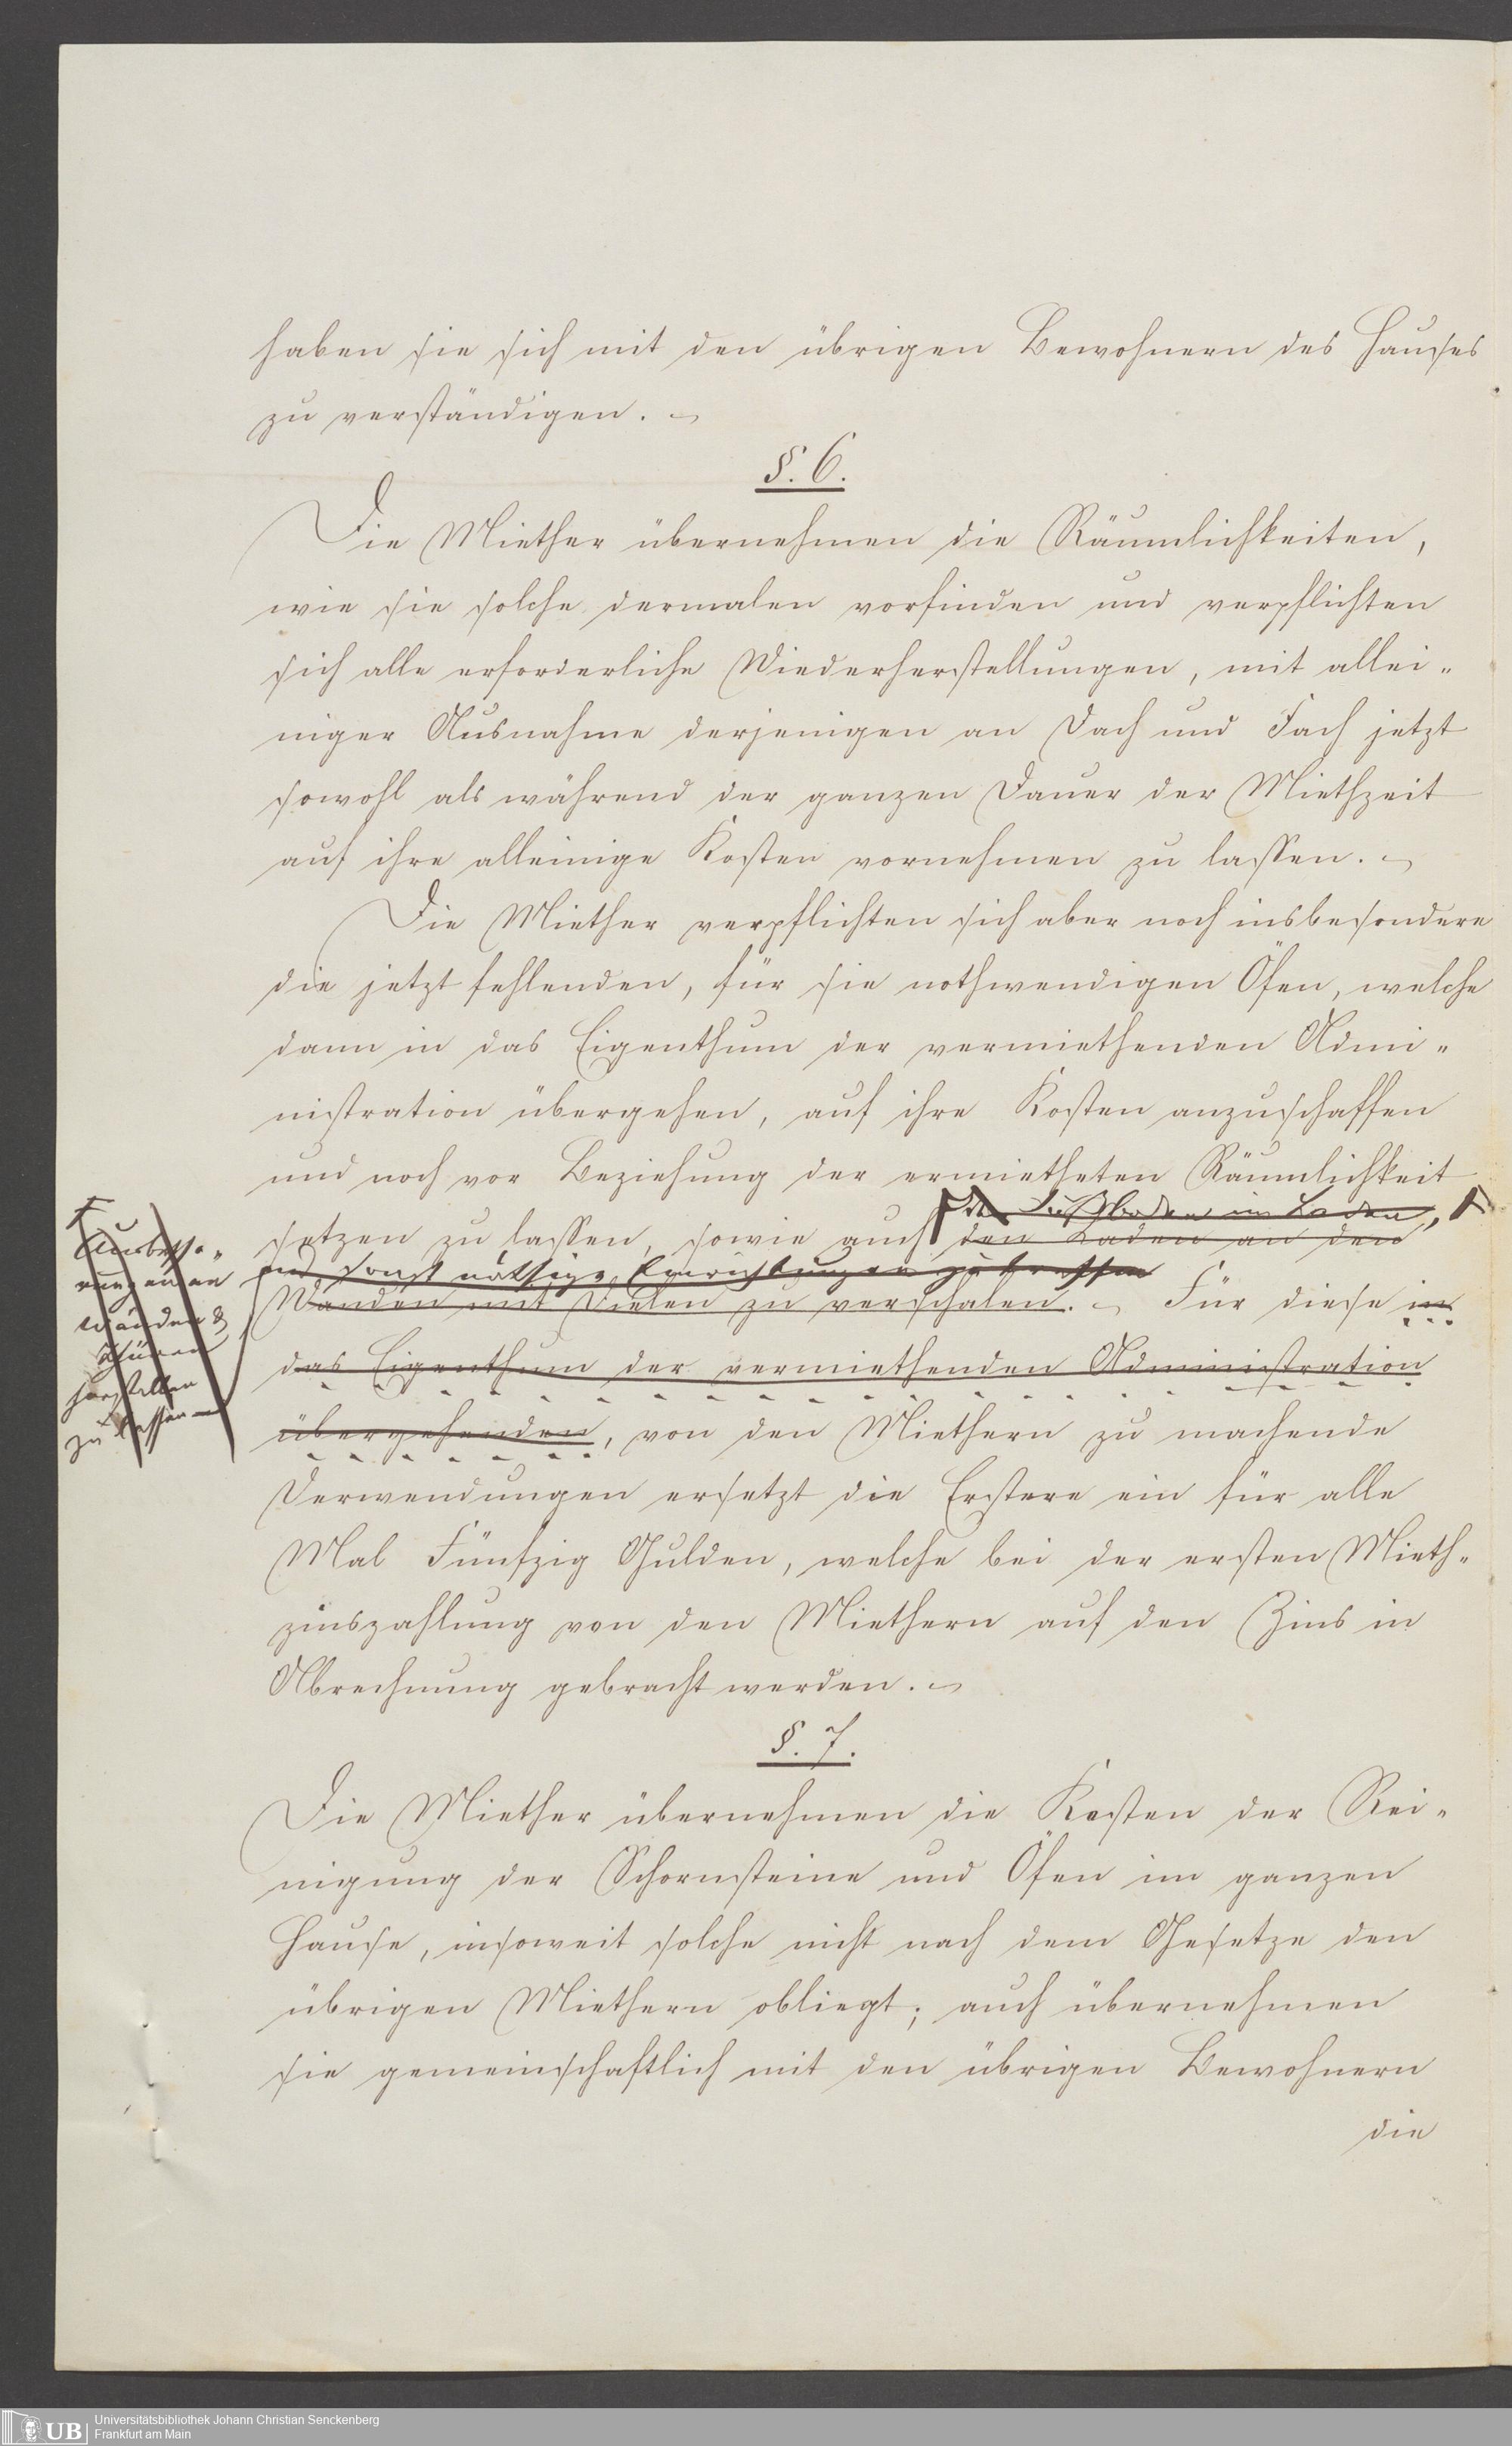 haben sie sich mit den übrigen Bewohnern des Hauses
zu verständigen. –
§. 6.
Die Miether übernehmen die Räumlichkeiten,
wie sie solche dermalen vorfinden und verpflichten
sich alle erforderliche Wiederherstellungen, mit allei-
niger Ausnahme derjenigen an Dach und Fach jetzt
sowohl als während der ganzen Dauer der Miethzeit
auf ihre alleinige Kosten vornehmen zu lassen. –
Die Miether verpflichten sich aber noch insbesondere
die jetzt fehlenden, für sie nothwendigen Öfen, welche
dann in das Eigenthum der vermiethenden Admi-
nistration übergehen, auf ihre Kosten anzuschaffen
und noch vor Beziehung der ermietheten Räumlichkeit
Fußboden im Laden,
setzen zu lassen, sowie auch den Laden an den
und sonst nöthige Einrichtungen zu treffen
Wänden mit Dielen zu verschalen. – Für diese in
das Eigenthum der vermiethenden Administration
übergehenden, von den Miethern zu machende
Verwendungen ersetzt die Erstere ein für alle
Mal Fünfzig Gulden, welche bei der ersten Mieth-
zinszahlung von den Miethern auf den Zins in
Abrechnung gebracht werden. –
Ausbesse-
rungen an
Wänden &
Thüren
herstellen
zu lassen
§. 7.
Die Miether übernehmen die Kosten der Rei-
nigung der Schornsteine und Öfen im ganzen
Hause, insoweit solche nicht nach dem Gesetze den
übrigen Miethern obliegt; auch übernehmen
sie gemeinschaftlich mit den übrigen Bewohnern
die
UB
Universitätsbibliothek Johann Christian Senckenberg
Frankfurt am Main